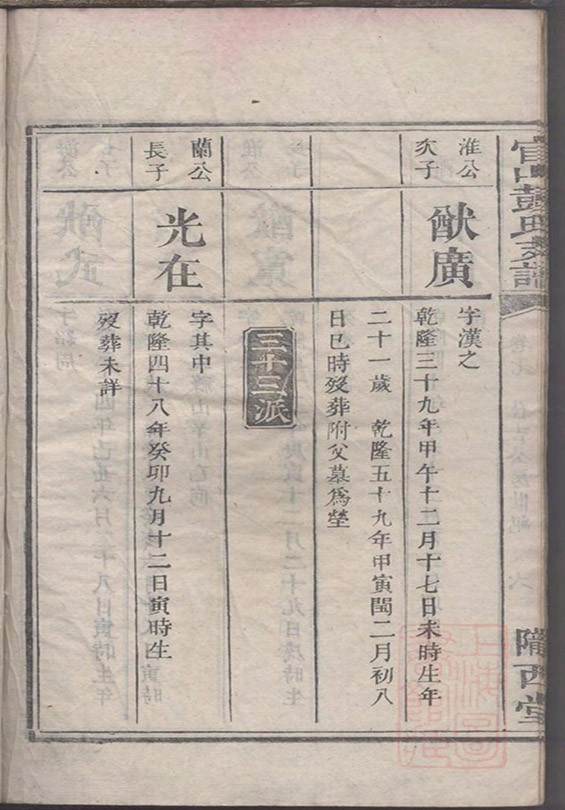 官山彭氏支譜
隴西堂
淮公
次子
猷廣
字漢之
乾隆三十九年甲午十二月十七日未時生年
二十一歲 乾隆五十九年甲寅閏二月初八
日巳時歿葬附父墓為塋
三十三派
蘭公
長子
光在
字其中
乾隆四十八年癸卯九月十二日寅時生
歿葬未詳